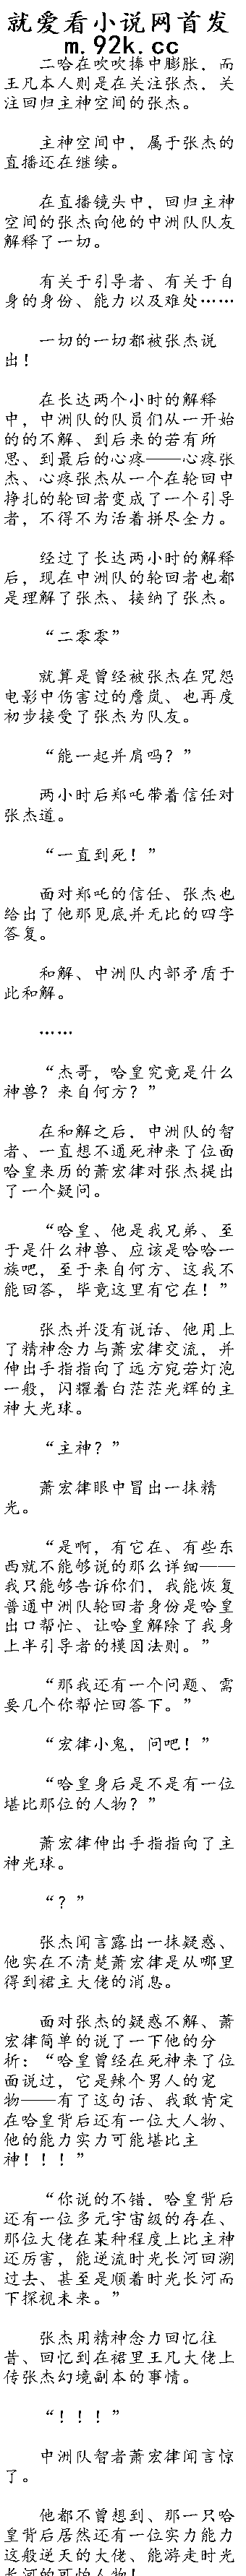 就爱看小说网首发
m.92k.cc
二哈在吹吹捧中膨胀，而
王凡本人则是在关注张杰，关
注回归主神空间的张杰。
主神空间中，属于张杰的
直播还在继续。
在直播镜头中，回归主神
空间的张杰向他的中洲队队友
解释了一切。
有关于引导者、有关于自
身的身份、能力以及难处……
一切的一切都被张杰说
出！
在长达两个小时的解释
中，中洲队的队员们从一开始
的的不解、到后来的若有所
思、到最后的心疼——心疼张
杰、心疼张杰从一个在轮回中
挣扎的轮回者变成了一个引导
者，不得不为活着拼尽全力。
经过了长达两小时的解释
后，现在中洲队的轮回者也都
是理解了张杰、接纳了张杰。
“二零零”
就算是曾经被张杰在咒怨
电影中伤害过的詹岚、也再度
初步接受了张杰为队友。
“能一起并肩吗？”
两小时后郑吒带着信任对
张杰道。
“一直到死！”
面对郑吒的信任、张杰也
给出了他那见底并无比的四字
答复。
和解、中洲队内部矛盾于
此和解。
……
“杰哥，哈皇究竟是什么
神兽？来自何方？”
在和解之后，中洲队的智
者、一直想不通死神来了位面
哈皇来历的萧宏律对张杰提出
了一个疑问。
“哈皇、他是我兄弟、至
于是什么神兽、应该是哈哈一
族吧，至于来自何方、这我不
能回答，毕竟这里有它在！”
张杰并没有说话、他用上
了精神念力与萧宏律交流，并
伸出手指指向了远方宛若灯泡
一般，闪耀着白茫茫光辉的主
神大光球。
“主神？”
萧宏律眼中冒出一抹精
光。
“是啊，有它在、有些东
西就不能够说的那么详细——
我只能够告诉你们，我能恢复
普通中洲队轮回者身份是哈皇
出口帮忙、让哈皇解除了我身
上半引导者的模因法则。”
“那我还有一个问题、需
要几个你帮忙回答下。”
“宏律小鬼，问吧！”
“哈皇身后是不是有一位
堪比那位的人物？”
萧宏律伸出手指指向了主
神光球。
“？”
张杰闻言露出一抹疑惑、
他实在不清楚萧宏律是从哪里
得到裙主大佬的消息。
面对张杰的疑惑不解、萧
宏律简单的说了一下他的分
析：“哈皇曾经在死神来了位
面说过，它是辣个男人的宠
物——有了这句话、我敢肯定
在哈皇背后还有一位大人物、
他的能力实力可能堪比主
神！！！”
“你说的不错，哈皇背后
还有一位多元宇宙级的存在、
那位大佬在某种程度上比主神
还厉害，能逆流时光长河回溯
过去、甚至是顺着时光长河而
下探视未来。”
张杰用精神念力回忆往
昔、回忆到在裙里王凡大佬上
传张杰幻境副本的事情。
“！！！”
中洲队智者萧宏律闻言惊
了。
他都不曾想到、那一只哈
皇背后居然还有一位实力能力
这般逆天的大佬、能游走时光
长河的可怕人物！